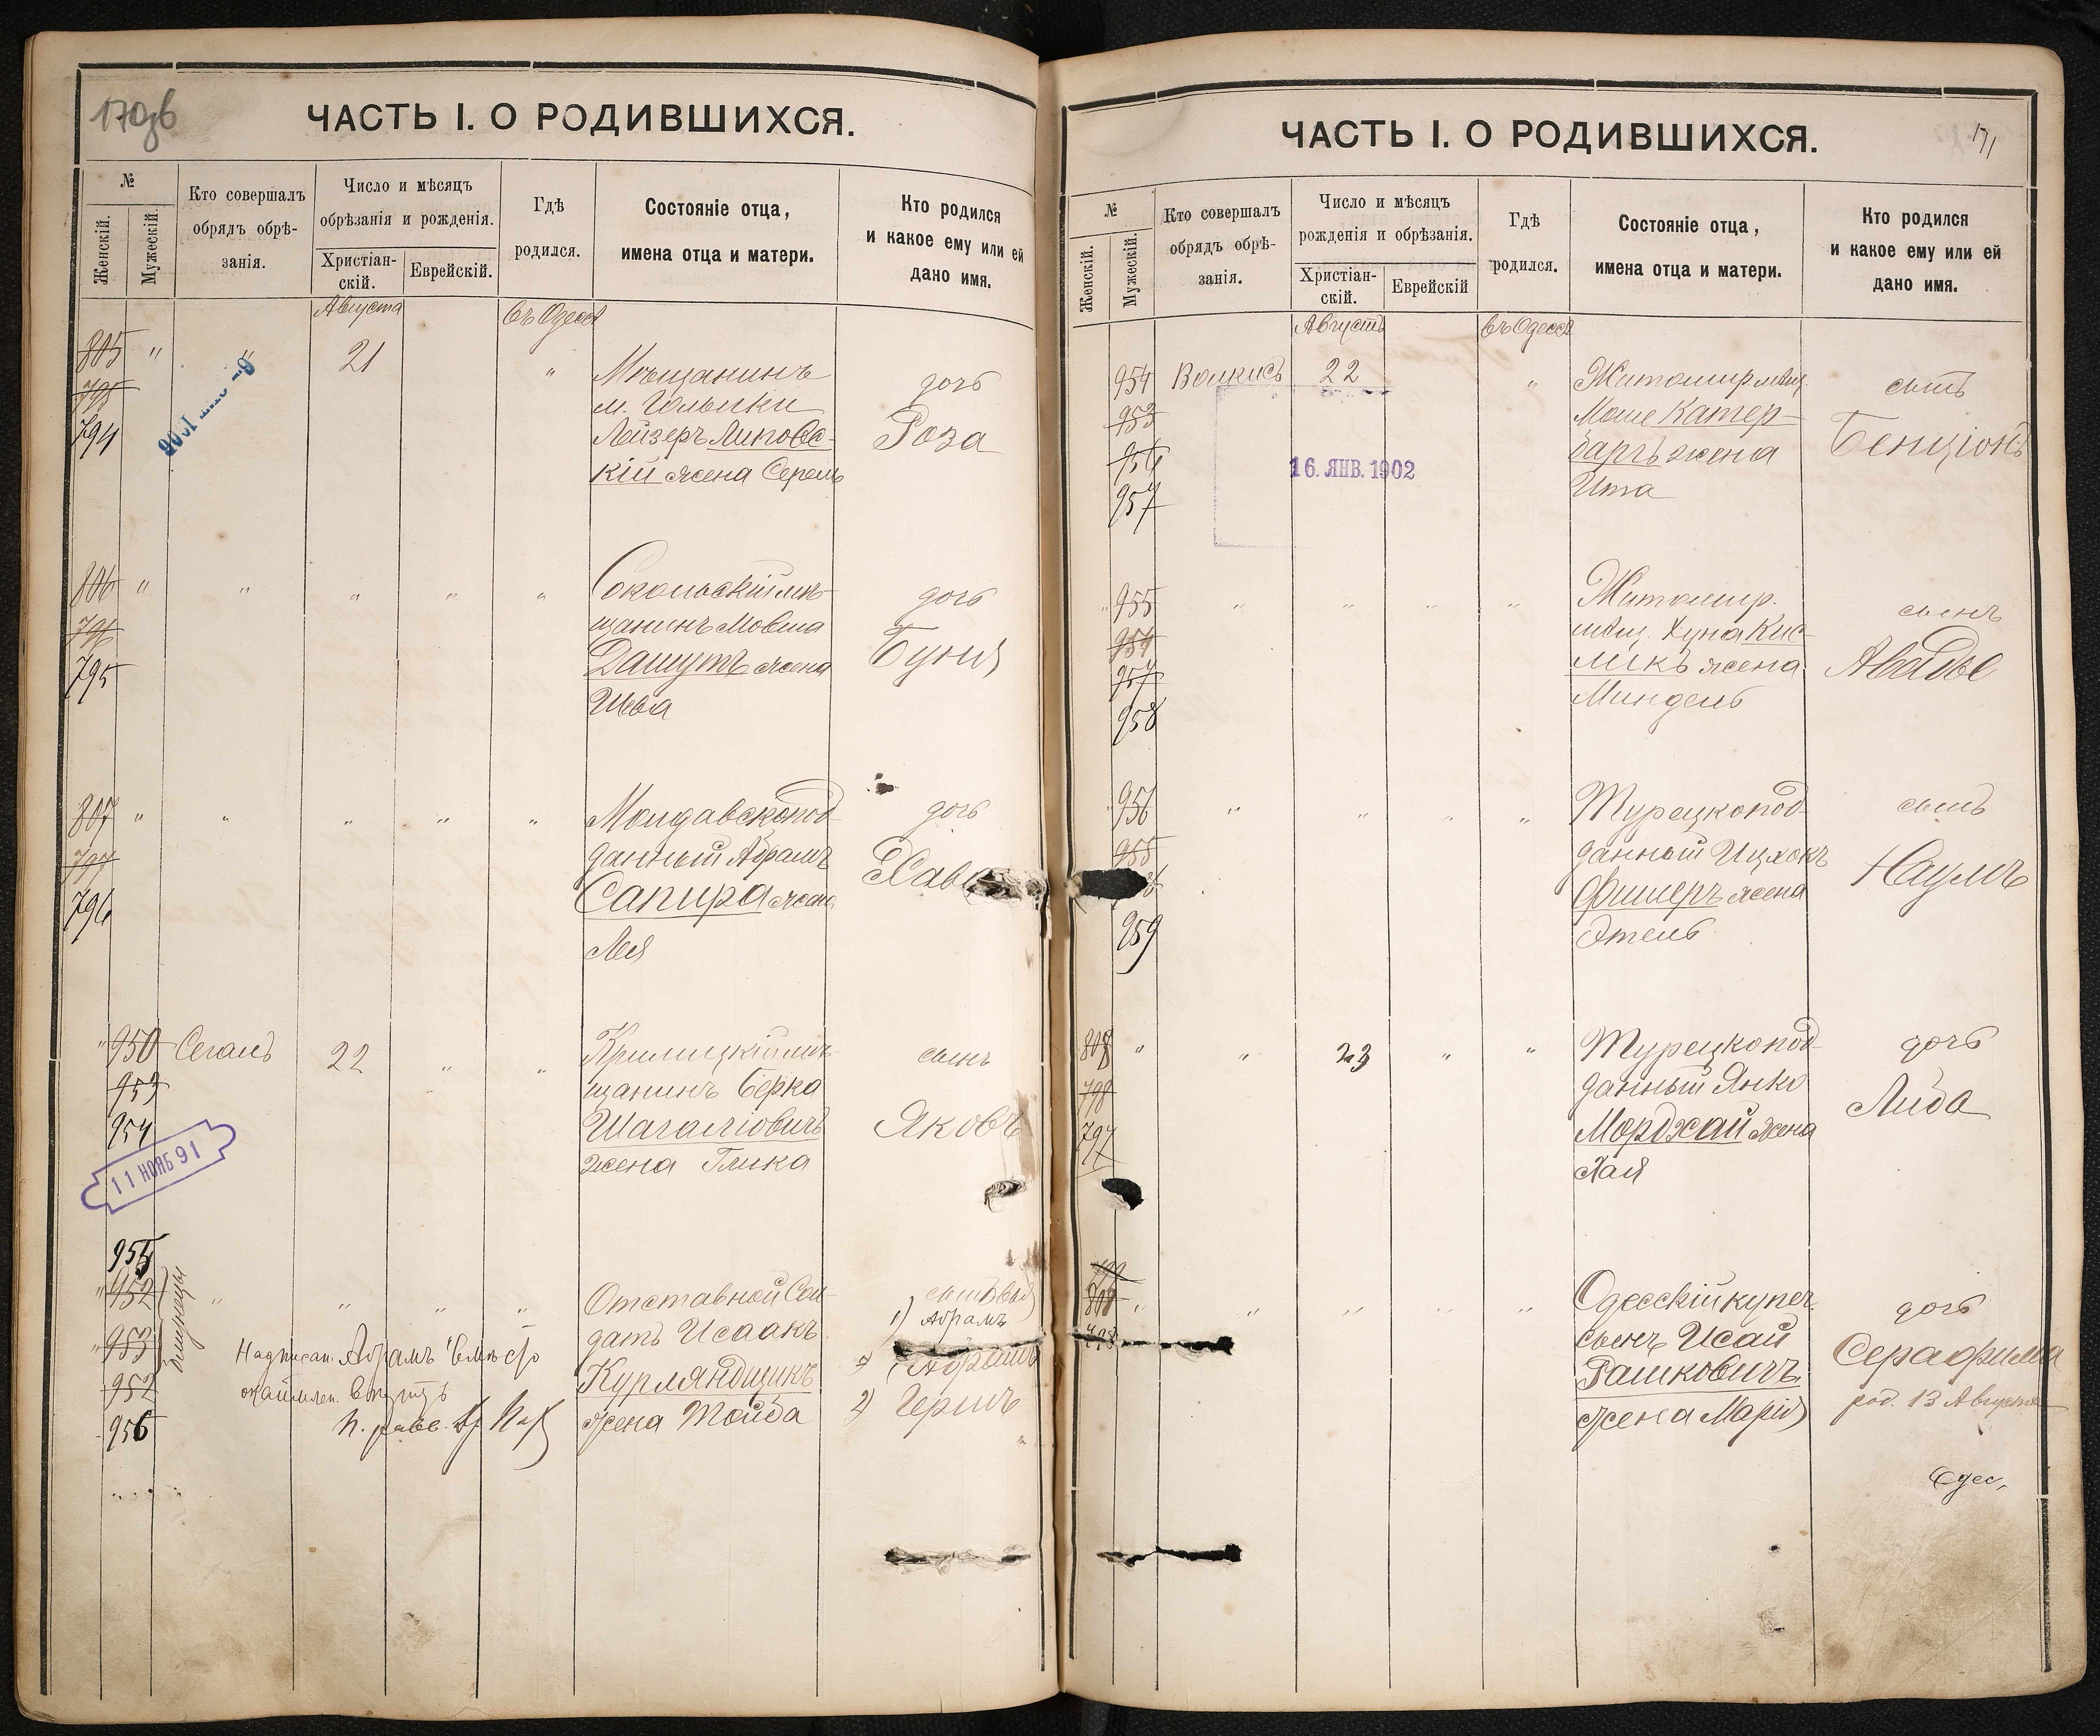 170об
ЧАСТЬ I. О РОДИВШИХСЯ.
№
Женскій.
Мужескій.
Кто совершалъ
обрядъ обрѣ-
занія.
Число и мѣсяцъ
обрѣзанія и рожденія.
Христіан-
скій.
Еврейскій.
Гдѣ
родился.
Состояніе отца,
имена отца и матери.
Кто родился
и какое ему или ей
дано имя.
Августа
въ Одессѣ
805 " " 21 "
795
794
Мѣщанинъ
м.
Лейзеръ Липовс-
кій жена Серель
дочь
Роза
806 " " " " "
796
795
Сокольскій мѣ-
щанинъ Мовша
Дашутъ жена
Шева
дочь
Буня
807 " " " " "
797
796
Молдавскопод-
данный Абрамъ
Сапира жена
Лея
дочь
Хава
" 950 Сегалъ 22 " "
953
954
11 НОЯБ 91
Крилицкій мѣ-
щанинъ Берка
Шагаліовичъ
жена Глика
сынъ
Яковъ
955
" 952 " " " "
" 953
952
956
близнецы
Надписан. Абрамъ вмѣсто
Отставной Сол-
датъ Исаакъ
Курляндщикъ
жена Тойба
сыновья
1) Абрамъ
2) Гершъ
171
ЧАСТЬ I. О РОДИВШИХСЯ.
№
Женскій.
Мужескій.
Кто совершалъ
обрядъ обрѣ-
занія.
Число и мѣсяцъ
рожденія и обрѣзанія.
Христіан-
скій.
Еврейскій
Гдѣ
родился.
Состояніе отца,
имена отца и матери.
Кто родился
и какое ему или ей
дано имя.
Августъ
въ Одессѣ
954 22 "
953
956
957
16. ЯНВ. 1902
Житомир мѣщ.
Моше Катер-
баргъ жена
Ита
сынъ
Бенціонъ
" 955 " " " "
954
957
958
Житомир.
мѣщ. Хуна Кис-
ликъ жена
Миндель
сынъ
Авадье
" 956 " " " "
955
959
Турецкопод-
данный Ицхокъ
Фишеръ жена
Этель
сынъ
Наумъ
808 " " 23 " "
798
797
Турецкопод-
данный Янко
Мордхай жена
Хая
дочь
Либа
798
Одесскій купеч.
сынъ Исай
Рашковичъ
жена Марія
дочь
Серафима
род. 13 Августа